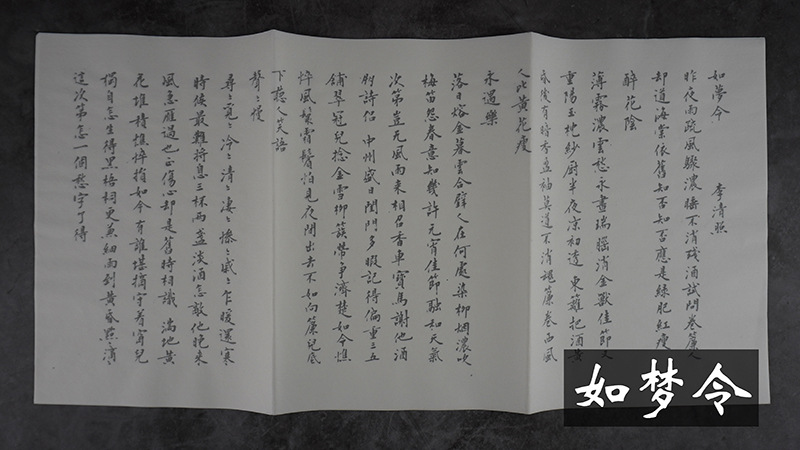 如夢令 李清照
昨夜雨疏風驟濃睡不消殘酒試問卷簾人
却道海棠依舊知否知否應是綠肥紅瘦
醉花陰
薄霧濃雲愁永晝瑞腦消金獸佳節又
重陽玉枕紗厨半夜涼初透東籬把酒黃
昏後有暗香盈袖莫道不消魂簾卷西風
人比黃花瘦
永遇樂
落日熔金暮雲合璧人在何處染柳烟濃吹
梅笛怨春意知幾許元宵佳節融和天氣
次第豈無風雨來相召香車寶馬謝他酒
朋詩侶中州盛日閨門多暇記得偏重三五
鋪翠冠兒捻金雪柳簇帶爭濟楚如今憔
悴風鬟霜鬢怕見夜間出去不如向簾兒底
下聽人笑語
聲聲慢
尋〻覓〻冷〻清〻凄〻慘〻戚〻乍暖還寒
時候最難將息三杯兩盞淡酒怎敵他晚來
風急雁過也正傷心却是舊時相識滿地黃
花堆積憔悴損如今有誰堪摘守着窗兒
獨自怎生得黑梧桐更兼細雨到黃昏點〻滴〻
這次第怎一個愁字了得
如梦令